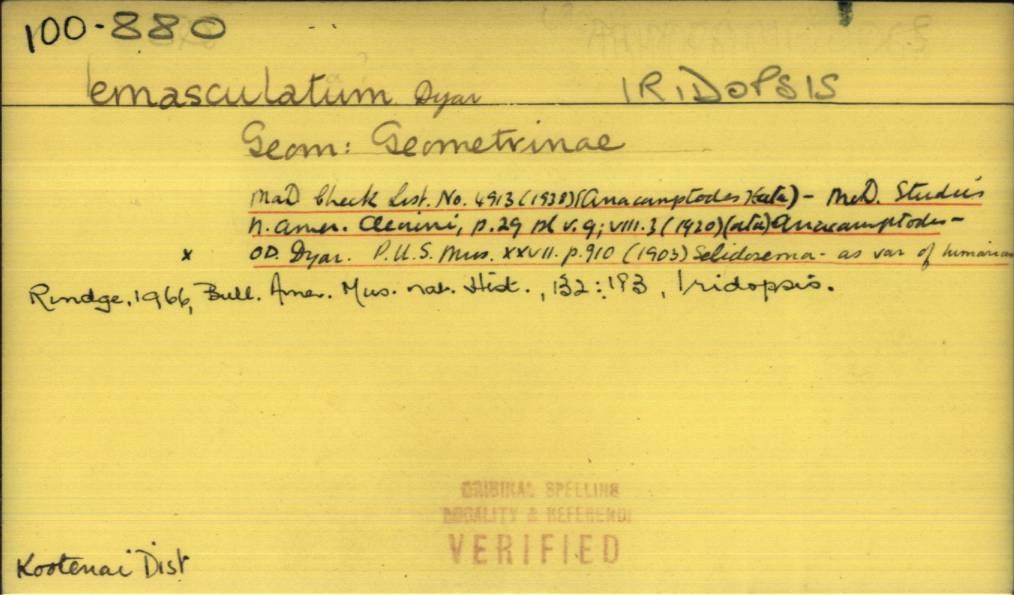 100-880
emasculatum Dyar IRIDOPSIS
Geom: Geometrinae
McD Check List. No. 4913 (1938) (Anacamptodes) (ata) - McD. Studies
N. Amer. Cleorini, p.29 pl v.9; VIII.3 (1920) (ata) Anacamptodes -
x OD. Dyar. P.U.S. Mus. XXVII. p.910 (1903) Selidosema - as var of humarian
Rindge, 1966, Bull. Amer. Mus. nat. Hist., 132:183, Iridopsis.
ORIGINAL SPELLING
LOCALITY & REFERENCE
VERIFIED
Kootenai Dist